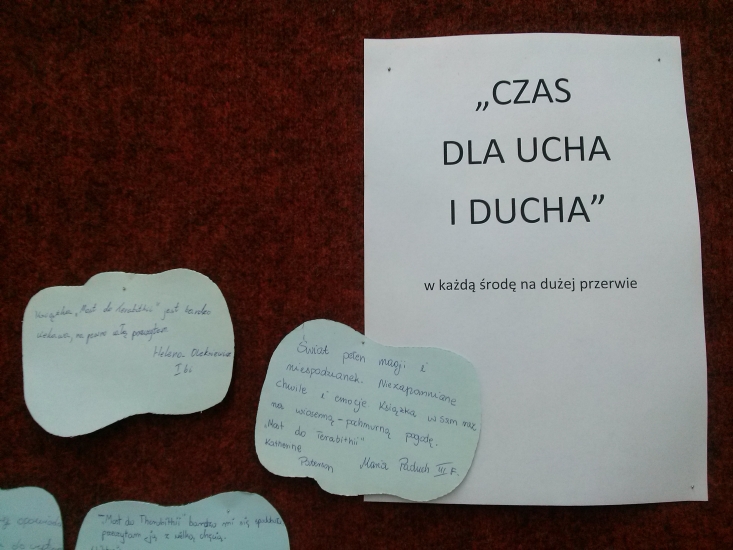 „CZAS
DLA UCHA
I DUCHA”
w każdą środę na dużej przerwie
Książka „Most do Terabithii” jest bardzo
ciekawa, na pewno ją przeczytam
Helena
I
Świat pełen magii i
niespodzianek. Niezapomniane
chwile i emocje. Książka w sam raz
na wiosenną - pochmurną pogodę.
„Most do Terabithii”
Katherine
Paterson Maria Paduch III F.
„Most do Therabithii” bardzo mi się
przeczytam ją z wielką chęcią.